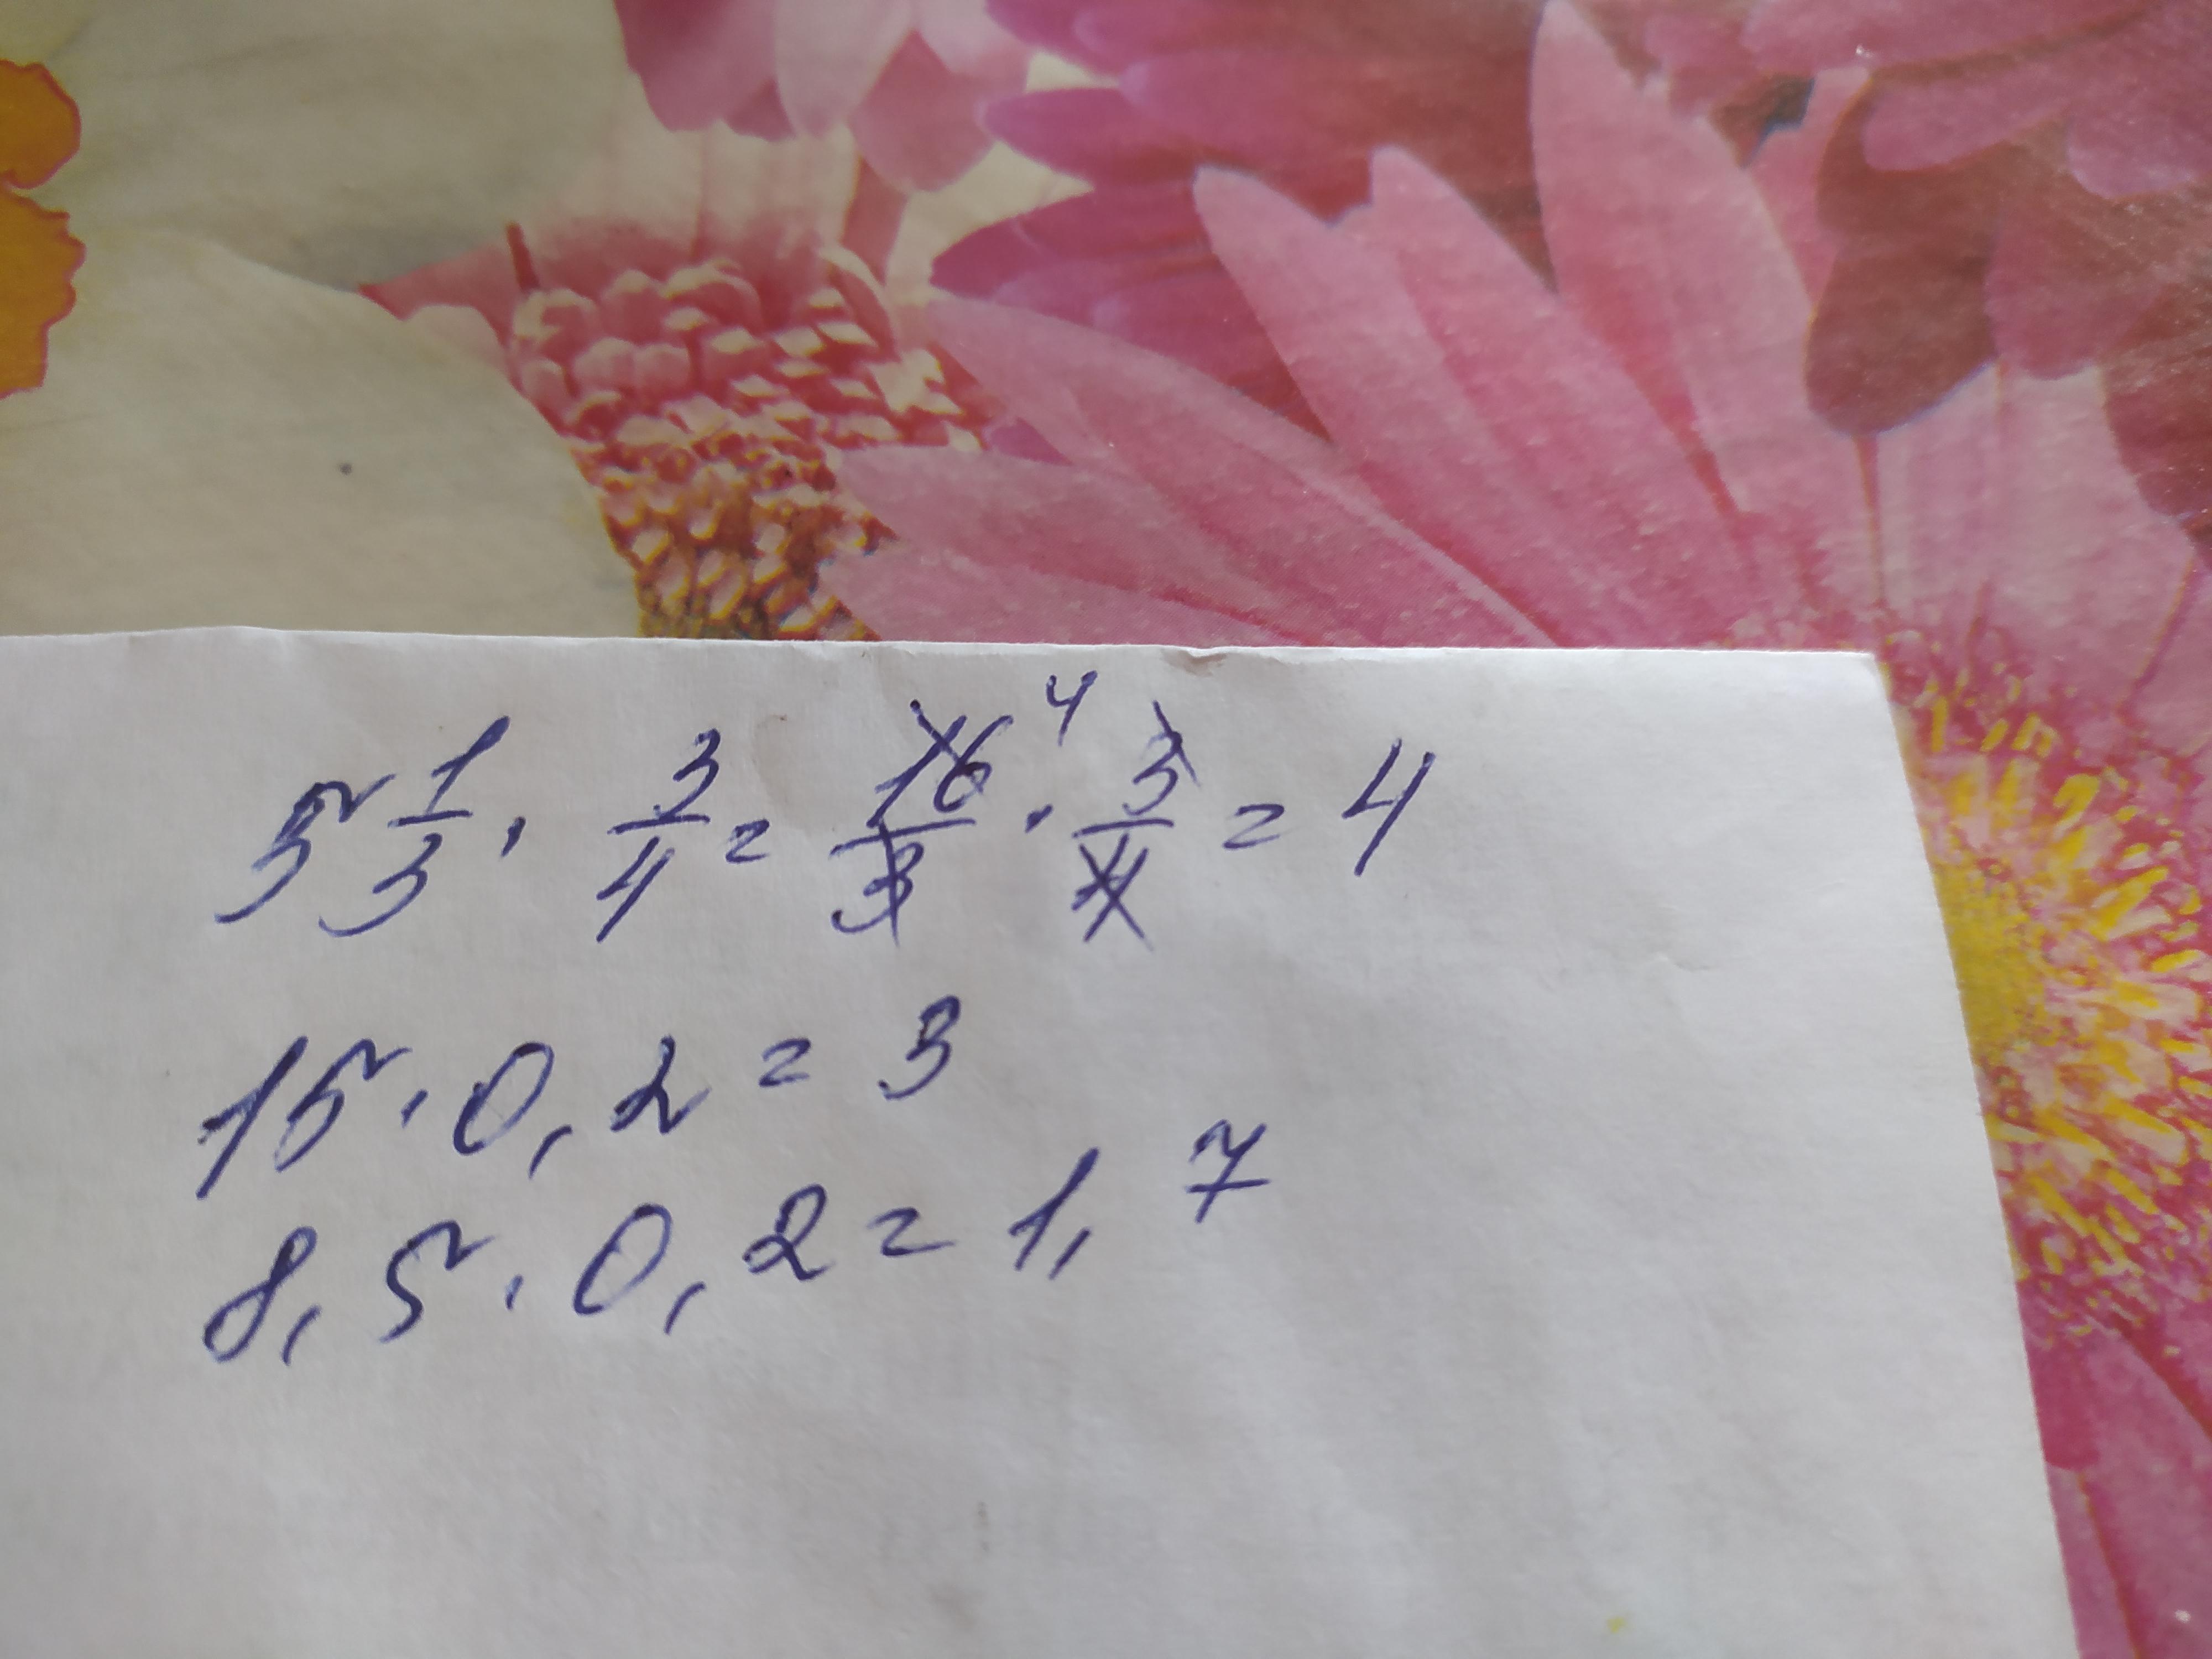 5 1/3 · 3/4 = 16/3 ⁴ · 3/4 = 4
15 · 0,2 = 3
8,5 · 0,2 = 1,7